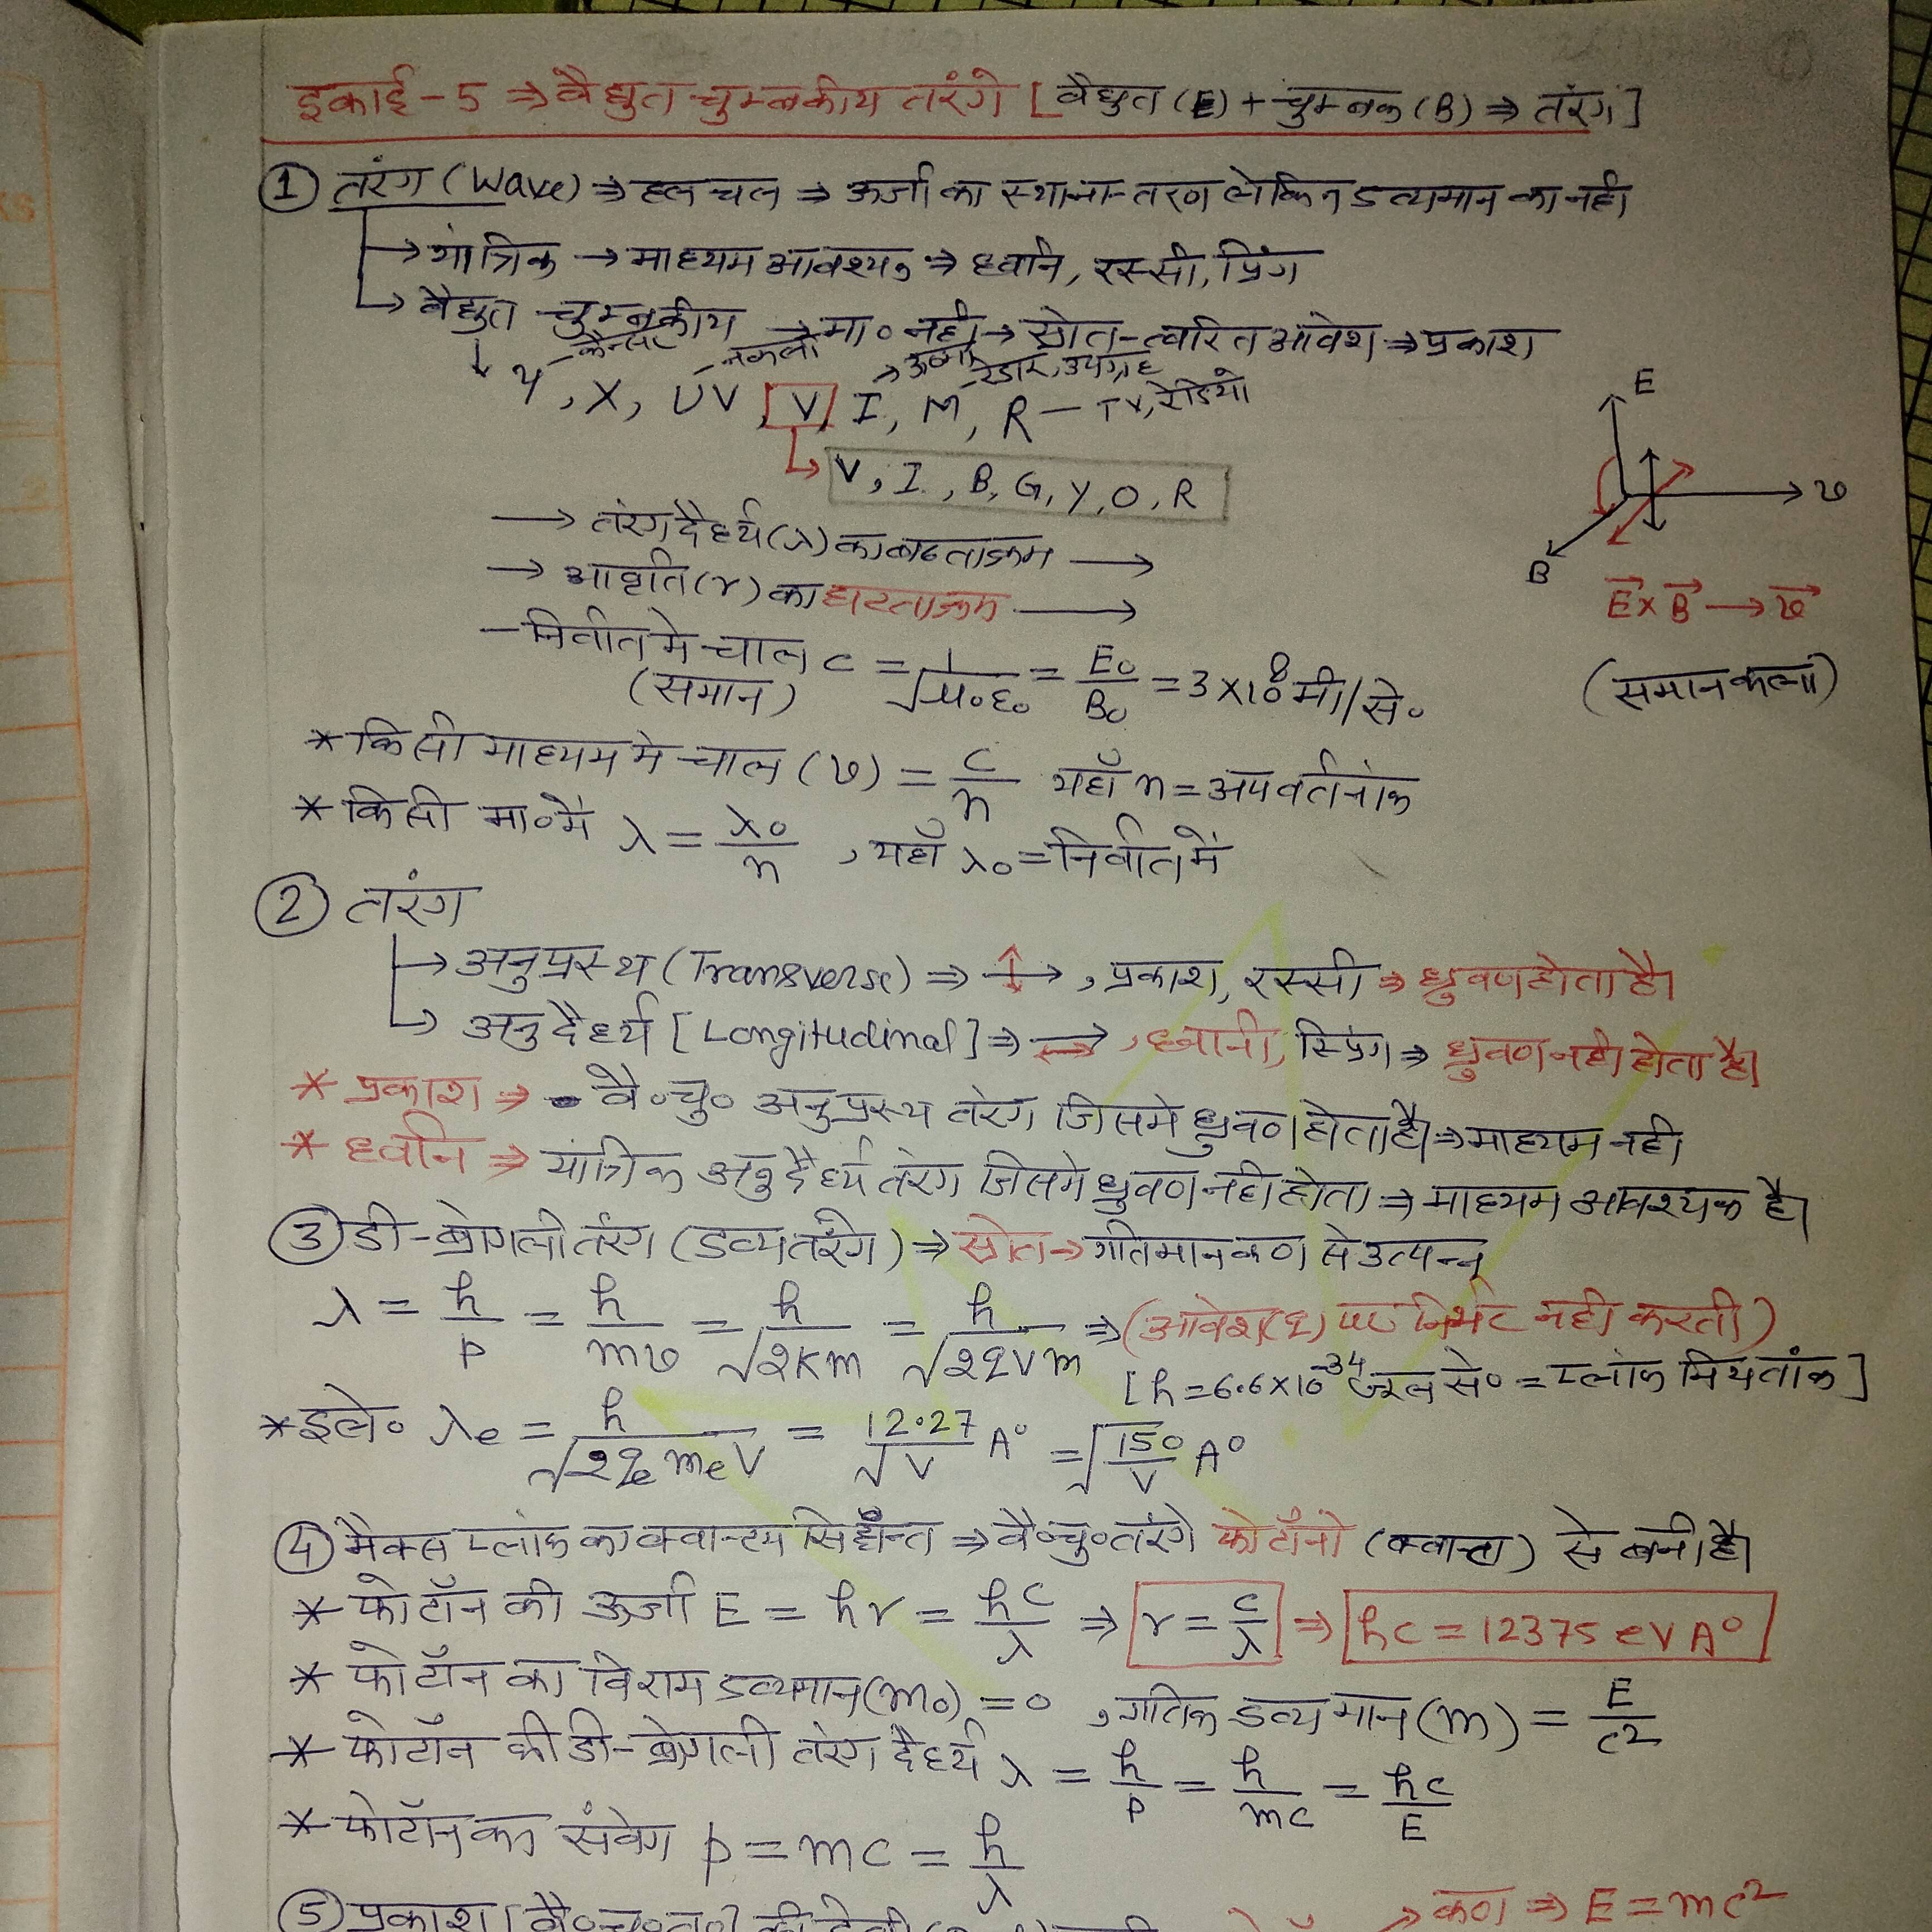 इकाई - 5 ⇒ वैद्युत चुम्बकीय तरंगे [वैद्युत (E) + चुम्बक (B) ⇒ तरंग]
① तरंग (Wave) ⇒ हल चल ⇒ ऊर्जा का स्थानान्तरण लेकिन द्रव्यमान का नही
→ यांत्रिक → माध्यम आवश्यक ⇒ ध्वनि, रस्सी, प्रिंग
→ वैद्युत चुम्बकीय ⇒ मा० नही → स्रोत - त्वरित आवेश ⇒ प्रकाश
कैन्सर रेडार, उपग्रह
↓ γ, X, UV, [V] I, M, R - TV, रेडियो
E
↳ V, I, B, G, Y, O, R
v
→ तरंगदैर्ध्य (λ) का बढताक्रम →
B
→ आवृति (ν) का घटताक्रम →
E⃗ × B⃗ → v⃗
- निर्वात मे चाल c = 1/√μ₀ε₀ = E₀/B₀ = 3 × 10⁸ मी/से०
(समान)
(समान कला)
* किसी माध्यम मे चाल (v) = c/n यहाँ n = अपवर्तनांक
* किसी मा० में λ = λ₀/n , यहाँ λ₀ = निर्वात में
② तरंग
→ अनुप्रस्थ (Transverse) ⇒ ↕→ , प्रकाश, रस्सी ⇒ ध्रुवण होता है।
↳ अनुदैर्ध्य [Longitudinal] ⇒ ⇄ , ध्वानी, स्प्रिंग ⇒ ध्रुवण नही होता है।
* प्रकाश ⇒ वै०चु० अनुप्रस्थ तरंग जिसमे ध्रुवण होता है। ⇒ माध्यम नही
* ध्वनि ⇒ यांत्रिक अनुदैर्ध्य तरंग जिसमे ध्रुवण नही होता ⇒ माध्यम आवश्यक है।
③ डी-ब्रोगली तंरग (द्रव्य तरंगे) ⇒ स्रोत → गतिमान कण से उत्पन्न
λ = h/p = h/mv = h/√2Km = h/√2qVm ⇒ (आवेश (q) पर निर्भर नही करती)
[h = 6.6 × 10⁻³⁴ जूल से० = प्लांक नियतांक]
* इले० λe = h/√2qₑmₑV = 12.27/√V A° = √150/V A°
④ मैक्स प्लांक का क्वान्टम सिद्धान्त ⇒ वै०चु० तरंगे फोटॉनो (क्वान्टा) से बनी है।
* फोटॉन की ऊर्जा E = hν = hc/λ ⇒ ν = c/λ ⇒ hc = 12375 eV A°
* फोटॉन का विराम द्रव्यमान (m₀) = 0 , गतिक द्रव्यमान (m) = E/c²
* फोटॉन की डी-ब्रोगली तरंग दैर्ध्य λ = h/p = h/mc = hc/E
* फोटॉन का संवेग p = mc = h/λ
→ कण ⇒ E = mc²
⑤ प्रकाश [वै०चु०त०] की